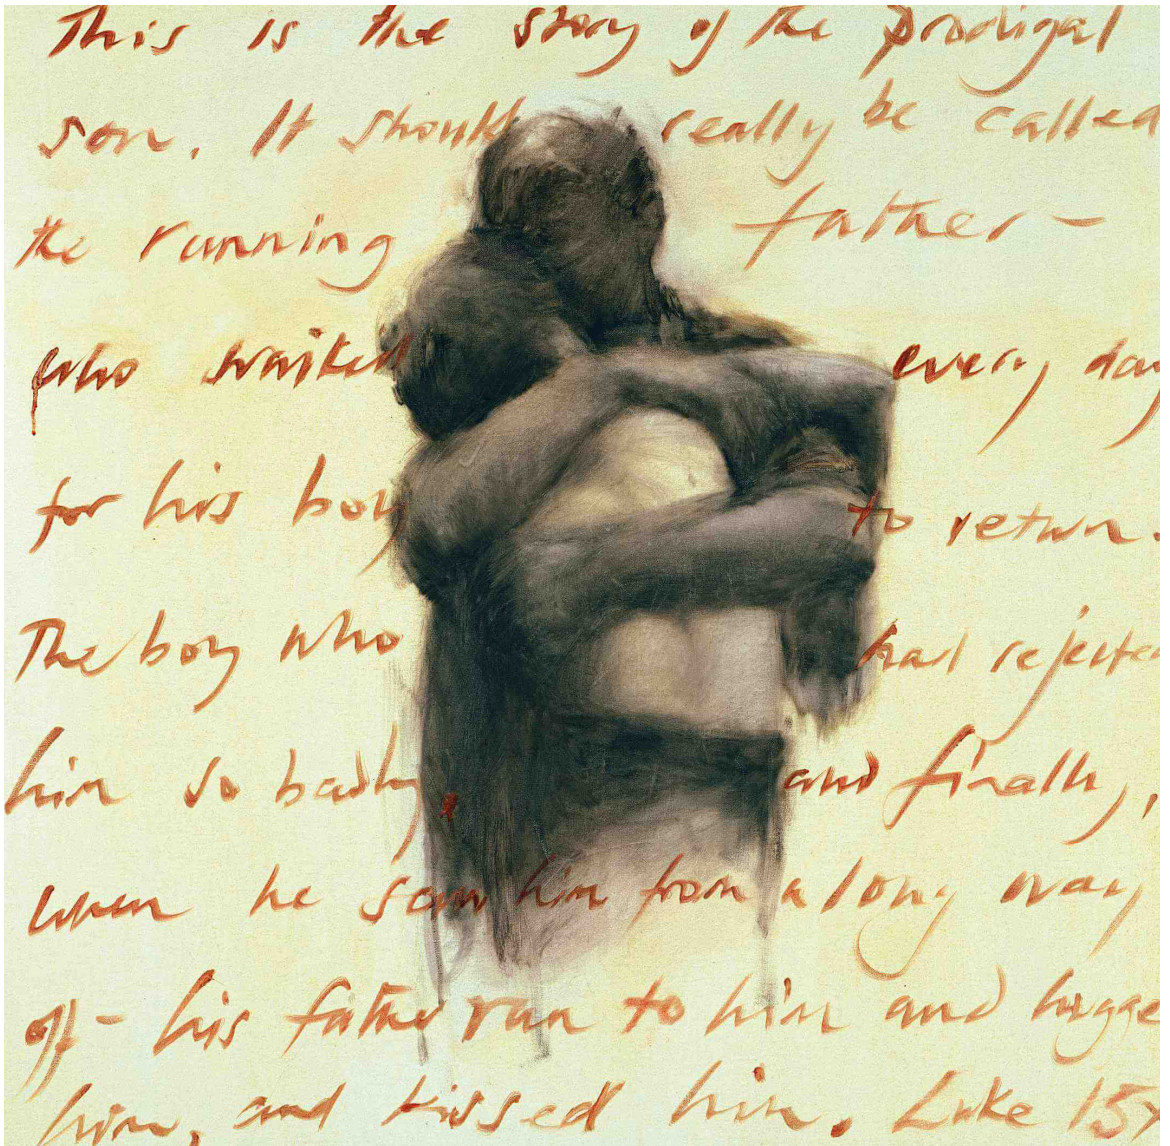 This is the story of the prodigal
son. It should really be called
the running father –
who waited every day
for his boy to return.
The boy who had rejected
him so badly, and finally,
when he saw him from a long way
off – his father ran to him and hugge
him, and kissed him. Luke 15